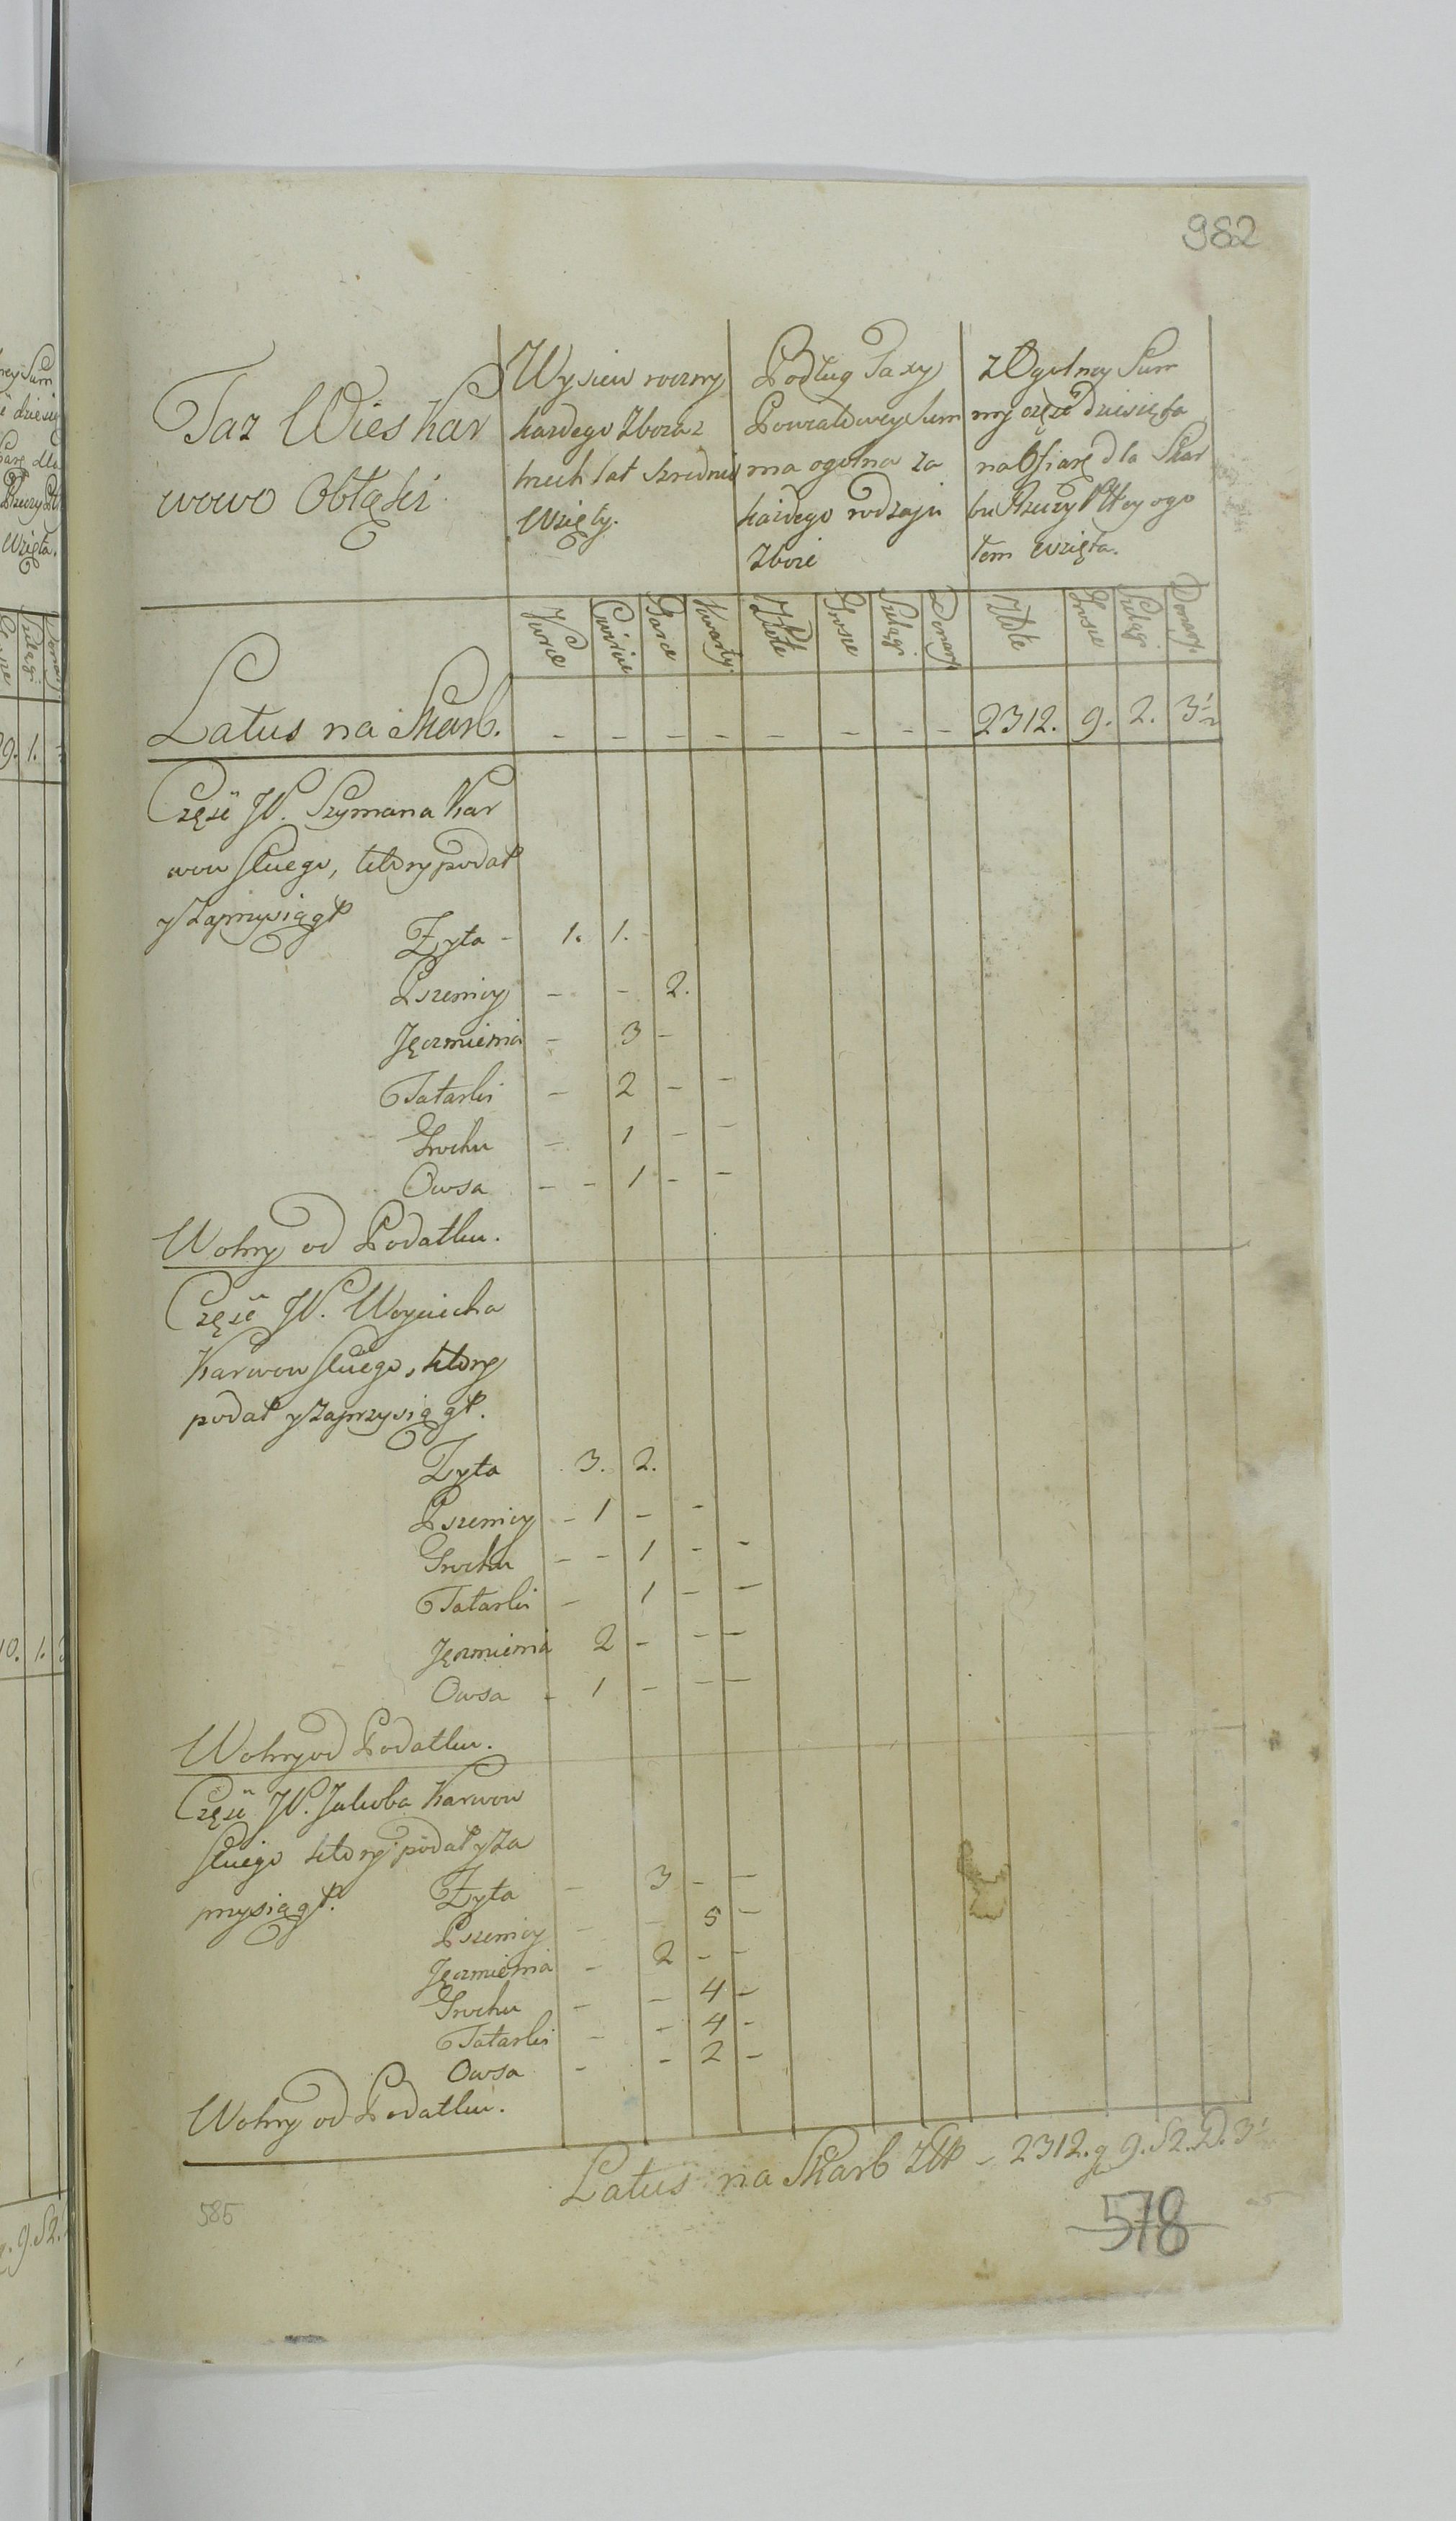 982
Taż Wieś Kar
wowo Obłęki
Wysiew roczny
każdego Zboża z
trzech lat szrednio
Wzięty.
Podług Taxy
Powiatowey Sum
ma ogulna za
każdego rodzaju
Zboże
z Ogulney Sum
my częsc dziesięta
na Ofiarę dla Skar
bu Rzeczy Pttey ogo
łem wzięta.
Korce Cwierci Garce Kwarty. Złote Grosze Szelągi Denary. Złote Grosze Szelągi Denary.
Latus na Skarb. - - - - - - - - 2312. 9. 2. 3 1/2
Częsć W. Szymana Kar
wowskiego, ktory podał
y Zaprzysiągł
Zyta - 1. 1. -
Pszenicy - - 2.
Jęczmienia - 3 -
Tatarki - 2 - -
Grochu - 1 - -
Owsa - - 1 - -
Wolny od Podatku.
Częsć W. Woyciecha
Karwowskiego, ktory
podał y Zaprzysiągł.
Zyta 3. 2.
Pszenicy - 1 - -
Grochu - - 1 - -
Tatarki - 1 - -
Jęczmienia 2 - - -
Owsa - 1 - - -
Wolny od Podatku.
Częsć W. Jakuba Karwow
skiego ktory podał y Za
przysiągł.
Zyta - 3 - -
Pszenicy - - 5 -
Jęczmienia - 2 - -
Grochu - - 4 -
Tatarki - - 4 -
Owsa - - 2 -
Wolny od Podatku.
Latus na Skarb Złł - 2312. g 9. S 2. D. 3 1/2
585
578